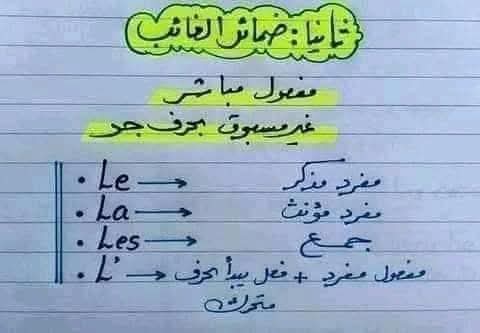 ثانيا: ضمائر الغائب
مفعول مباشر
غير مسبوق بحرف جر
• Le → مفرد مذكر
• La → مفرد مؤنث
• Les → جمع
• L' → مفعول مفرد + فعل يبدأ بحرف
متحرك